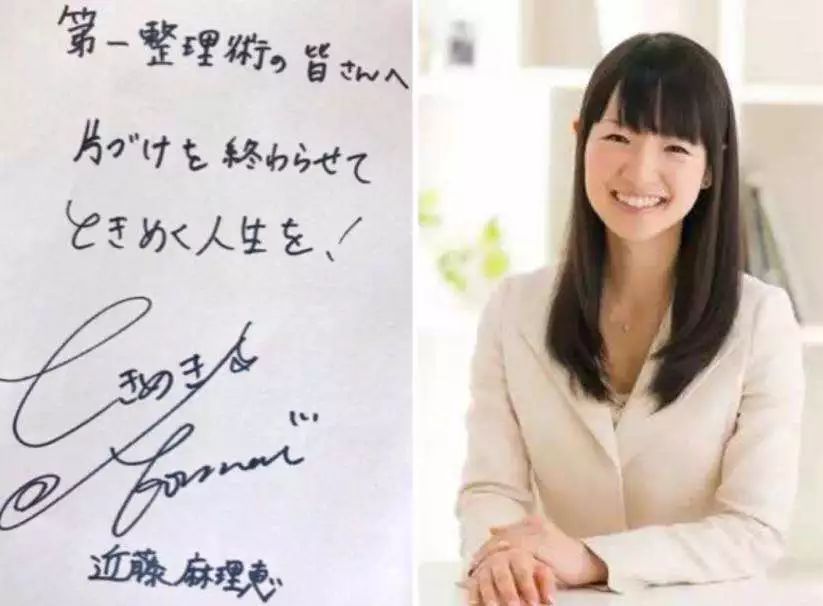 第一整理術の皆さんへ
片づけを終わらせて
ときめく人生を!
ときめき
近藤麻理恵